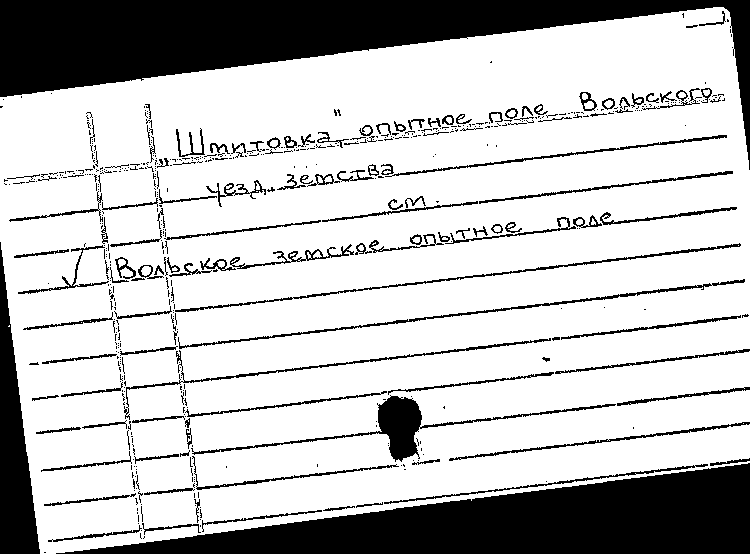 „Штитовка", опытное поле Вольского
уезд. земства
см.
Вольское земское опытное поле